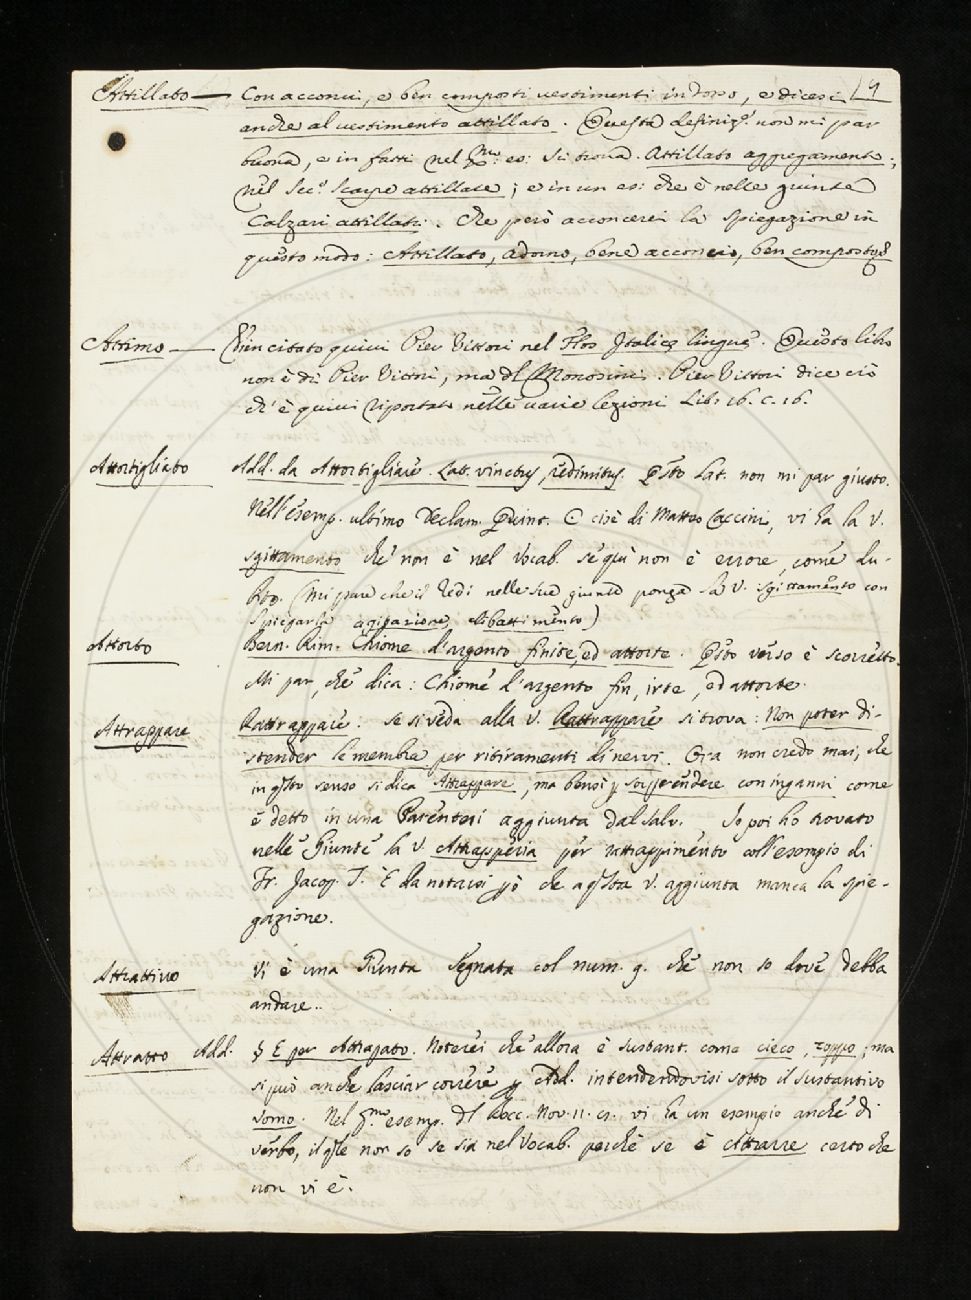 Attillato — Con acconci, e ben composti vestimenti in dosso, e dicesi
anche al vestimento attillato. Questa definiz.e non mi par
buona, e in fatti nel pmo: es: si trova. Attillato aggregamento;
nel sec.o Scarpe attillate; e in un es: che è nelle giunte
Calzari attillati. Che però acconcerei la spiegazione in
questo modo: Attillato, adorno, bene acconcio, ben composto
Attimo — Vien citato quivi Pier Vittori nel Flos Italicę linguę. Questo libro
non è di Pier Vittori, ma dl Monosini. Pier Vittori dice ciò
ch'è quivi riportato nelle varie lezioni Lib. 16. c. 16.
Attortigliato Add. da Attortigliare. Lat. vinctus, redimitus. Qsto Lat. non mi par giusto.
Nell'esemp. ultimo Declam. Quint. C cioè di Matteo Caccini, vi ha la V.
sgittamento che non è nel Vocab. se qui non è errore, come du-
bito. (Mi pare che il Redi nelle sue giunte ponga la V. sgittamento con
spiegarla agitazione, dibattimento)
Attorto Bern. Rim. Chiome d'argento finite, ed attorte. Qsto verso è scorretto.
Mi par, che dica: Chiome d'argento fin, irte, ed attorte.
Attrappare Rattrappare. Se si veda alla V. Rattrappare si trova: Non poter di-
stender le membra per ritiramenti di nervi. Ora non credo mai, che
in qsto senso si dica Attrappare, ma bensì p sorprendere con inganni come
è detto in una Parentesi aggiunta dal Salv. Io poi ho trovato
nelle Giunte la V. Attrapperia per rattrappimento coll'esempio di
Fr. Jacop. T. E da notarsi ppò che a qsta V. aggiunta manca la spie-
gazione.
Attrattivo Vi è una Giunta segnata col num. 9. che non so dove debba
andare..
Attratto Add. § E per Attrapato. Noterei che allora è sustant. come cieco, zoppo, ma
si può anche lasciar correre p Add. intendendovisi sotto il sustantivo
uomo. Nel pmo esemp. dl Bocc. Nov. 11. cs. vi ha un esempio anche di
verbo, il qle non so se sia nel Vocab. perchè se è Attrarre certo che
non vi è.